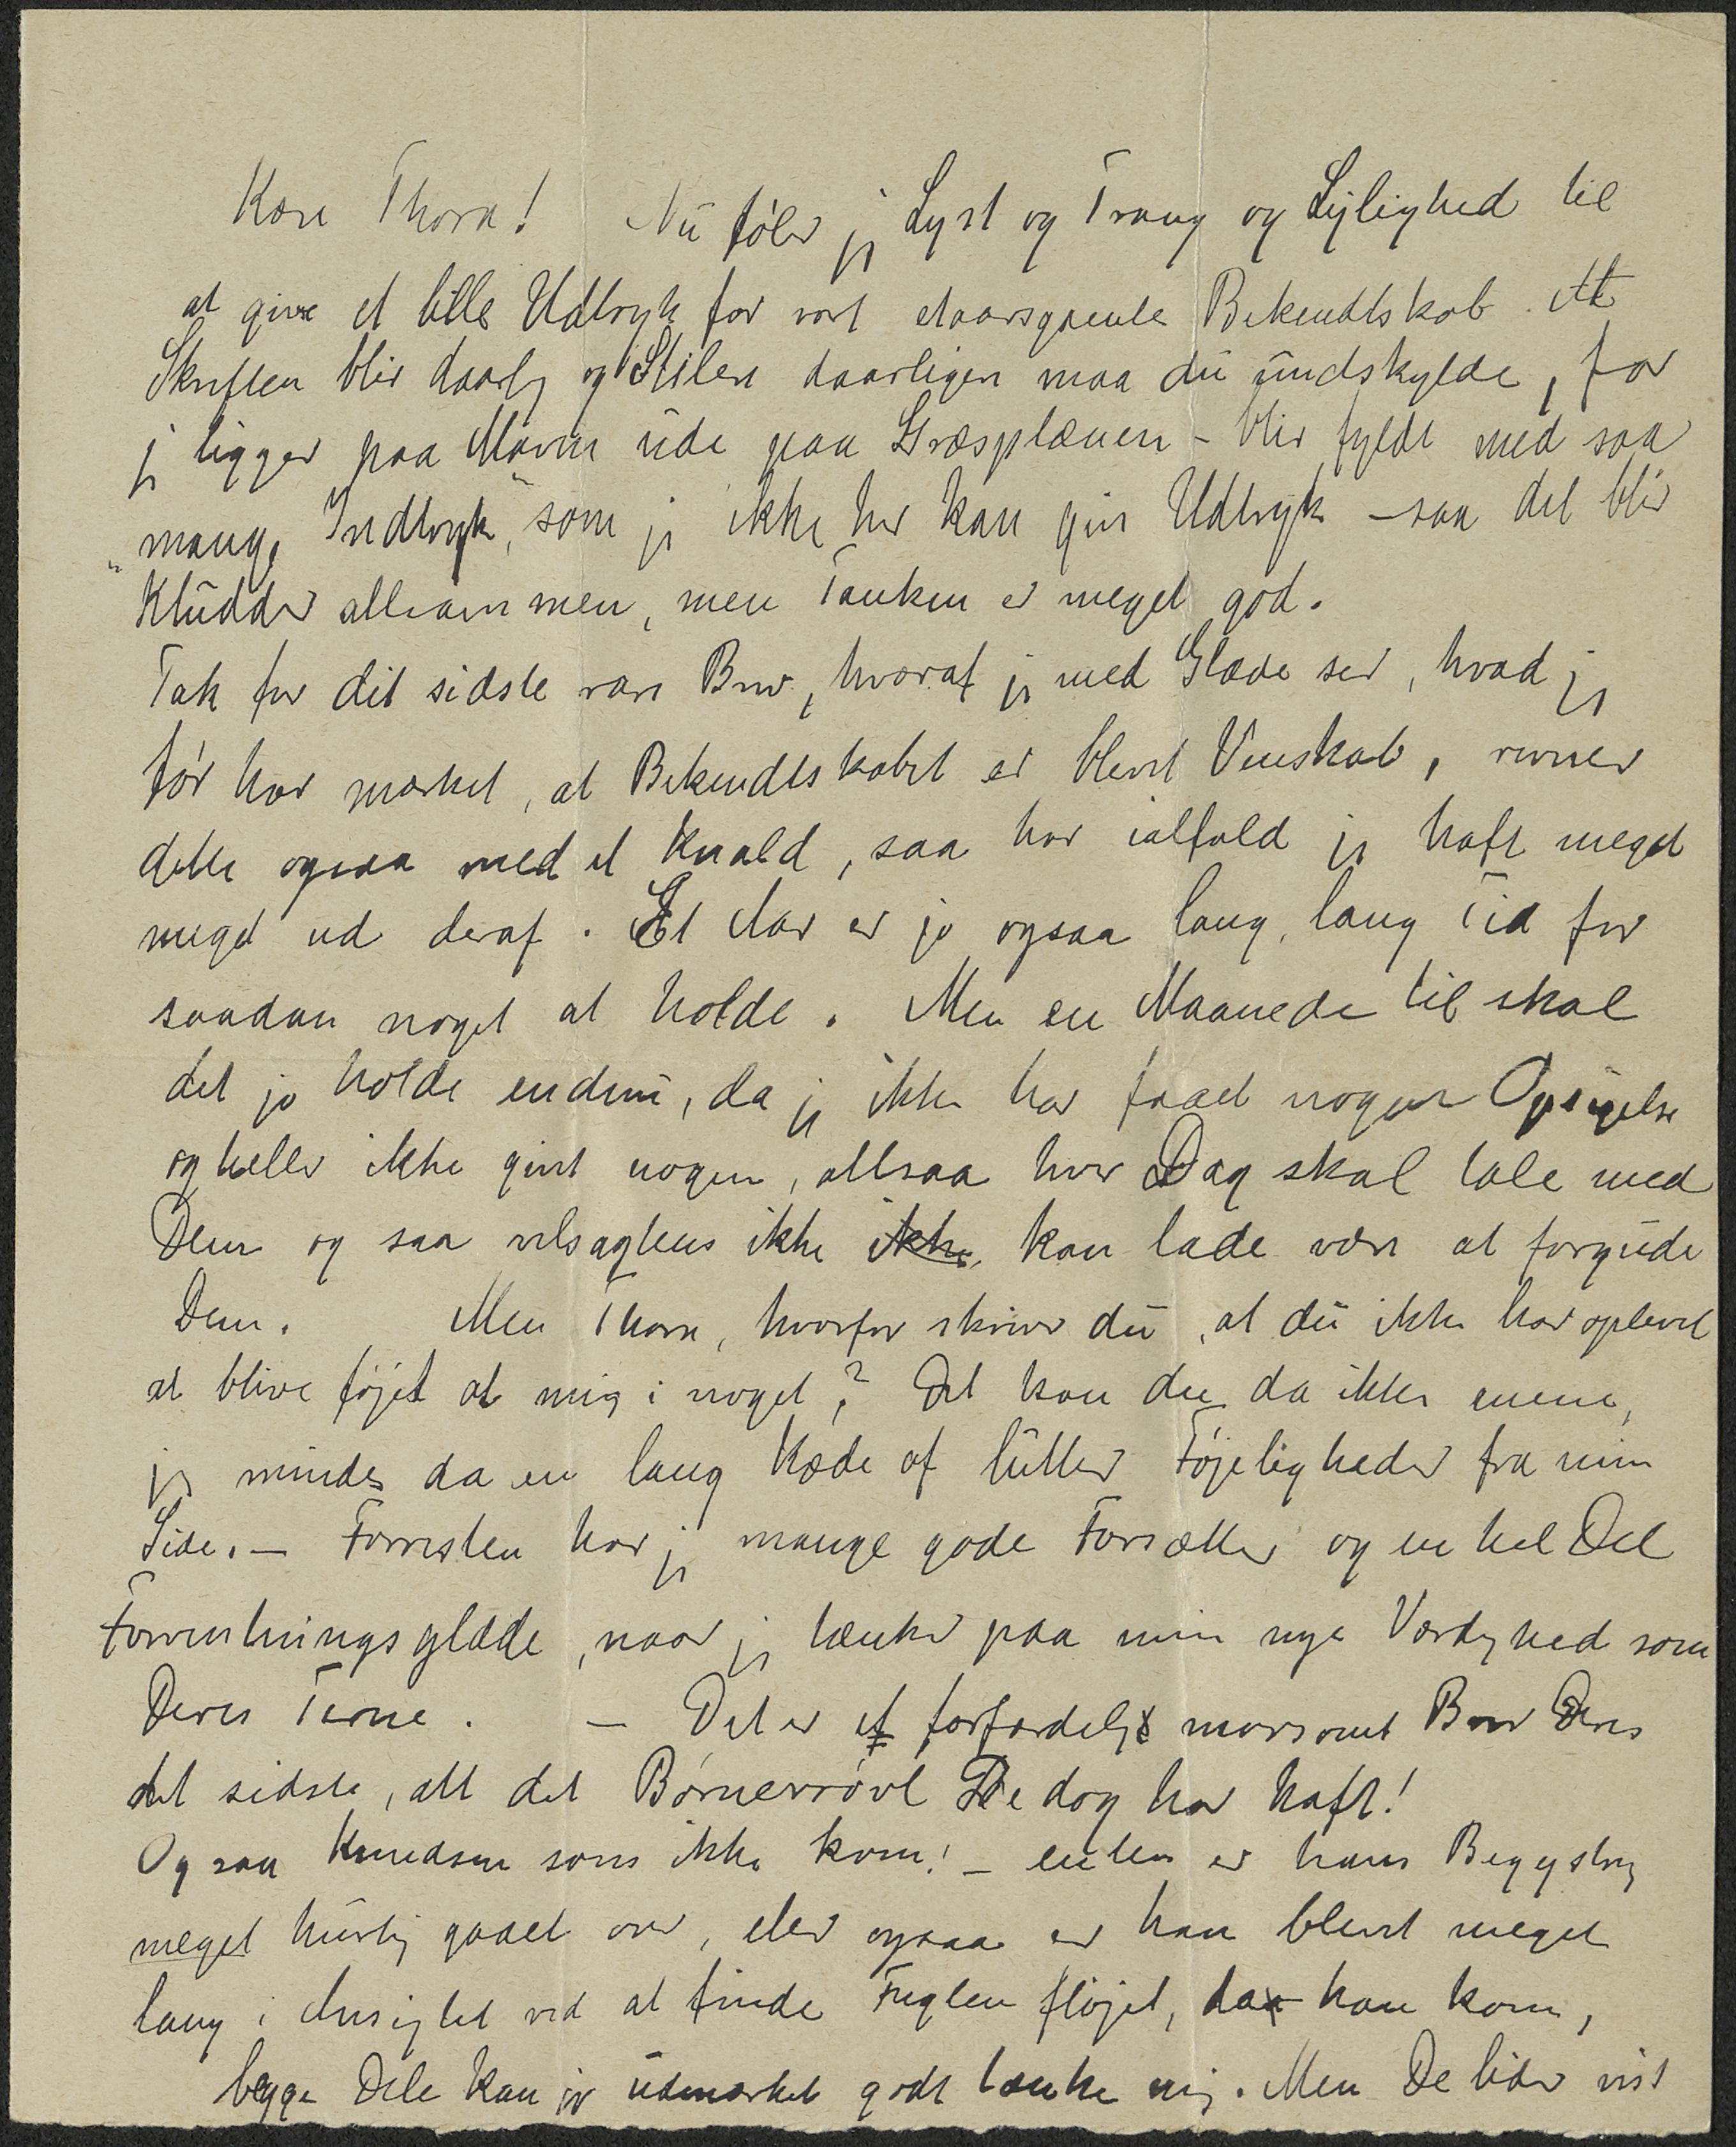 Kære Thora! Nu føler jeg Lyst og Trang og Lejlighed til
at give et lille Udtryk for vort etaarsgamle Bekendtskab. At
Skriften blir daarlig og Stilen daarligere maa du undskylde, for
jeg ligger paa Maven ude paa Græsplænen – blir fyldt med saa
"mange Indtryk", som jeg ikke her kan give Udtryk – saa det blir
Kludder allesammen, men Tanken er meget god.
Tak for dit sidste rare Brev, hvoraf jeg med Glæde ser, hvad jeg
før har mærket, at Bekendtskabet er blevet Venskab, revner
dette ogsaa med et Knald, saa har ialfald jeg haft meget
meget ud deraf. Et Aar er jo ogsaa lang, lang Tid for
saadan noget at holde. Men en Maaned til skal
det jo holde endnu, da jeg ikke har faaet nogen Opsigelse
og heller ikke givet nogen, altsaa hver Dag skal tale med
Dem og saa velsagtens ikke ikke kan lade være at forgude
Dem. Men Thora, hvorfor skriver du, at du ikke har oplevet
at blive føjet af mig i noget? Det kan du da ikke mene,
jeg mindes da en lang Kæde af lutter Føjeligheder fra min
Side. – Forresten har jeg mange gode Forsætter og en hel Del
Forventningsglæde, naar jeg tænker paa min nye Værdighed som
Deres Terne. – Det er et forfærdeligt morsomt Brev Deres
det sidste, alt det Børnerrøvl De dog har haft!
Og saa Knudsen som ikke kom! – enten er hans Begejstring
meget hurtig gaaet over, eller ogsaa er han blevet meget
lang i Ansigtet ved at finde Fuglen fløjet, da han kom,
begge Dele kan jeg udmærket godt tænke mig. Men De lider vist